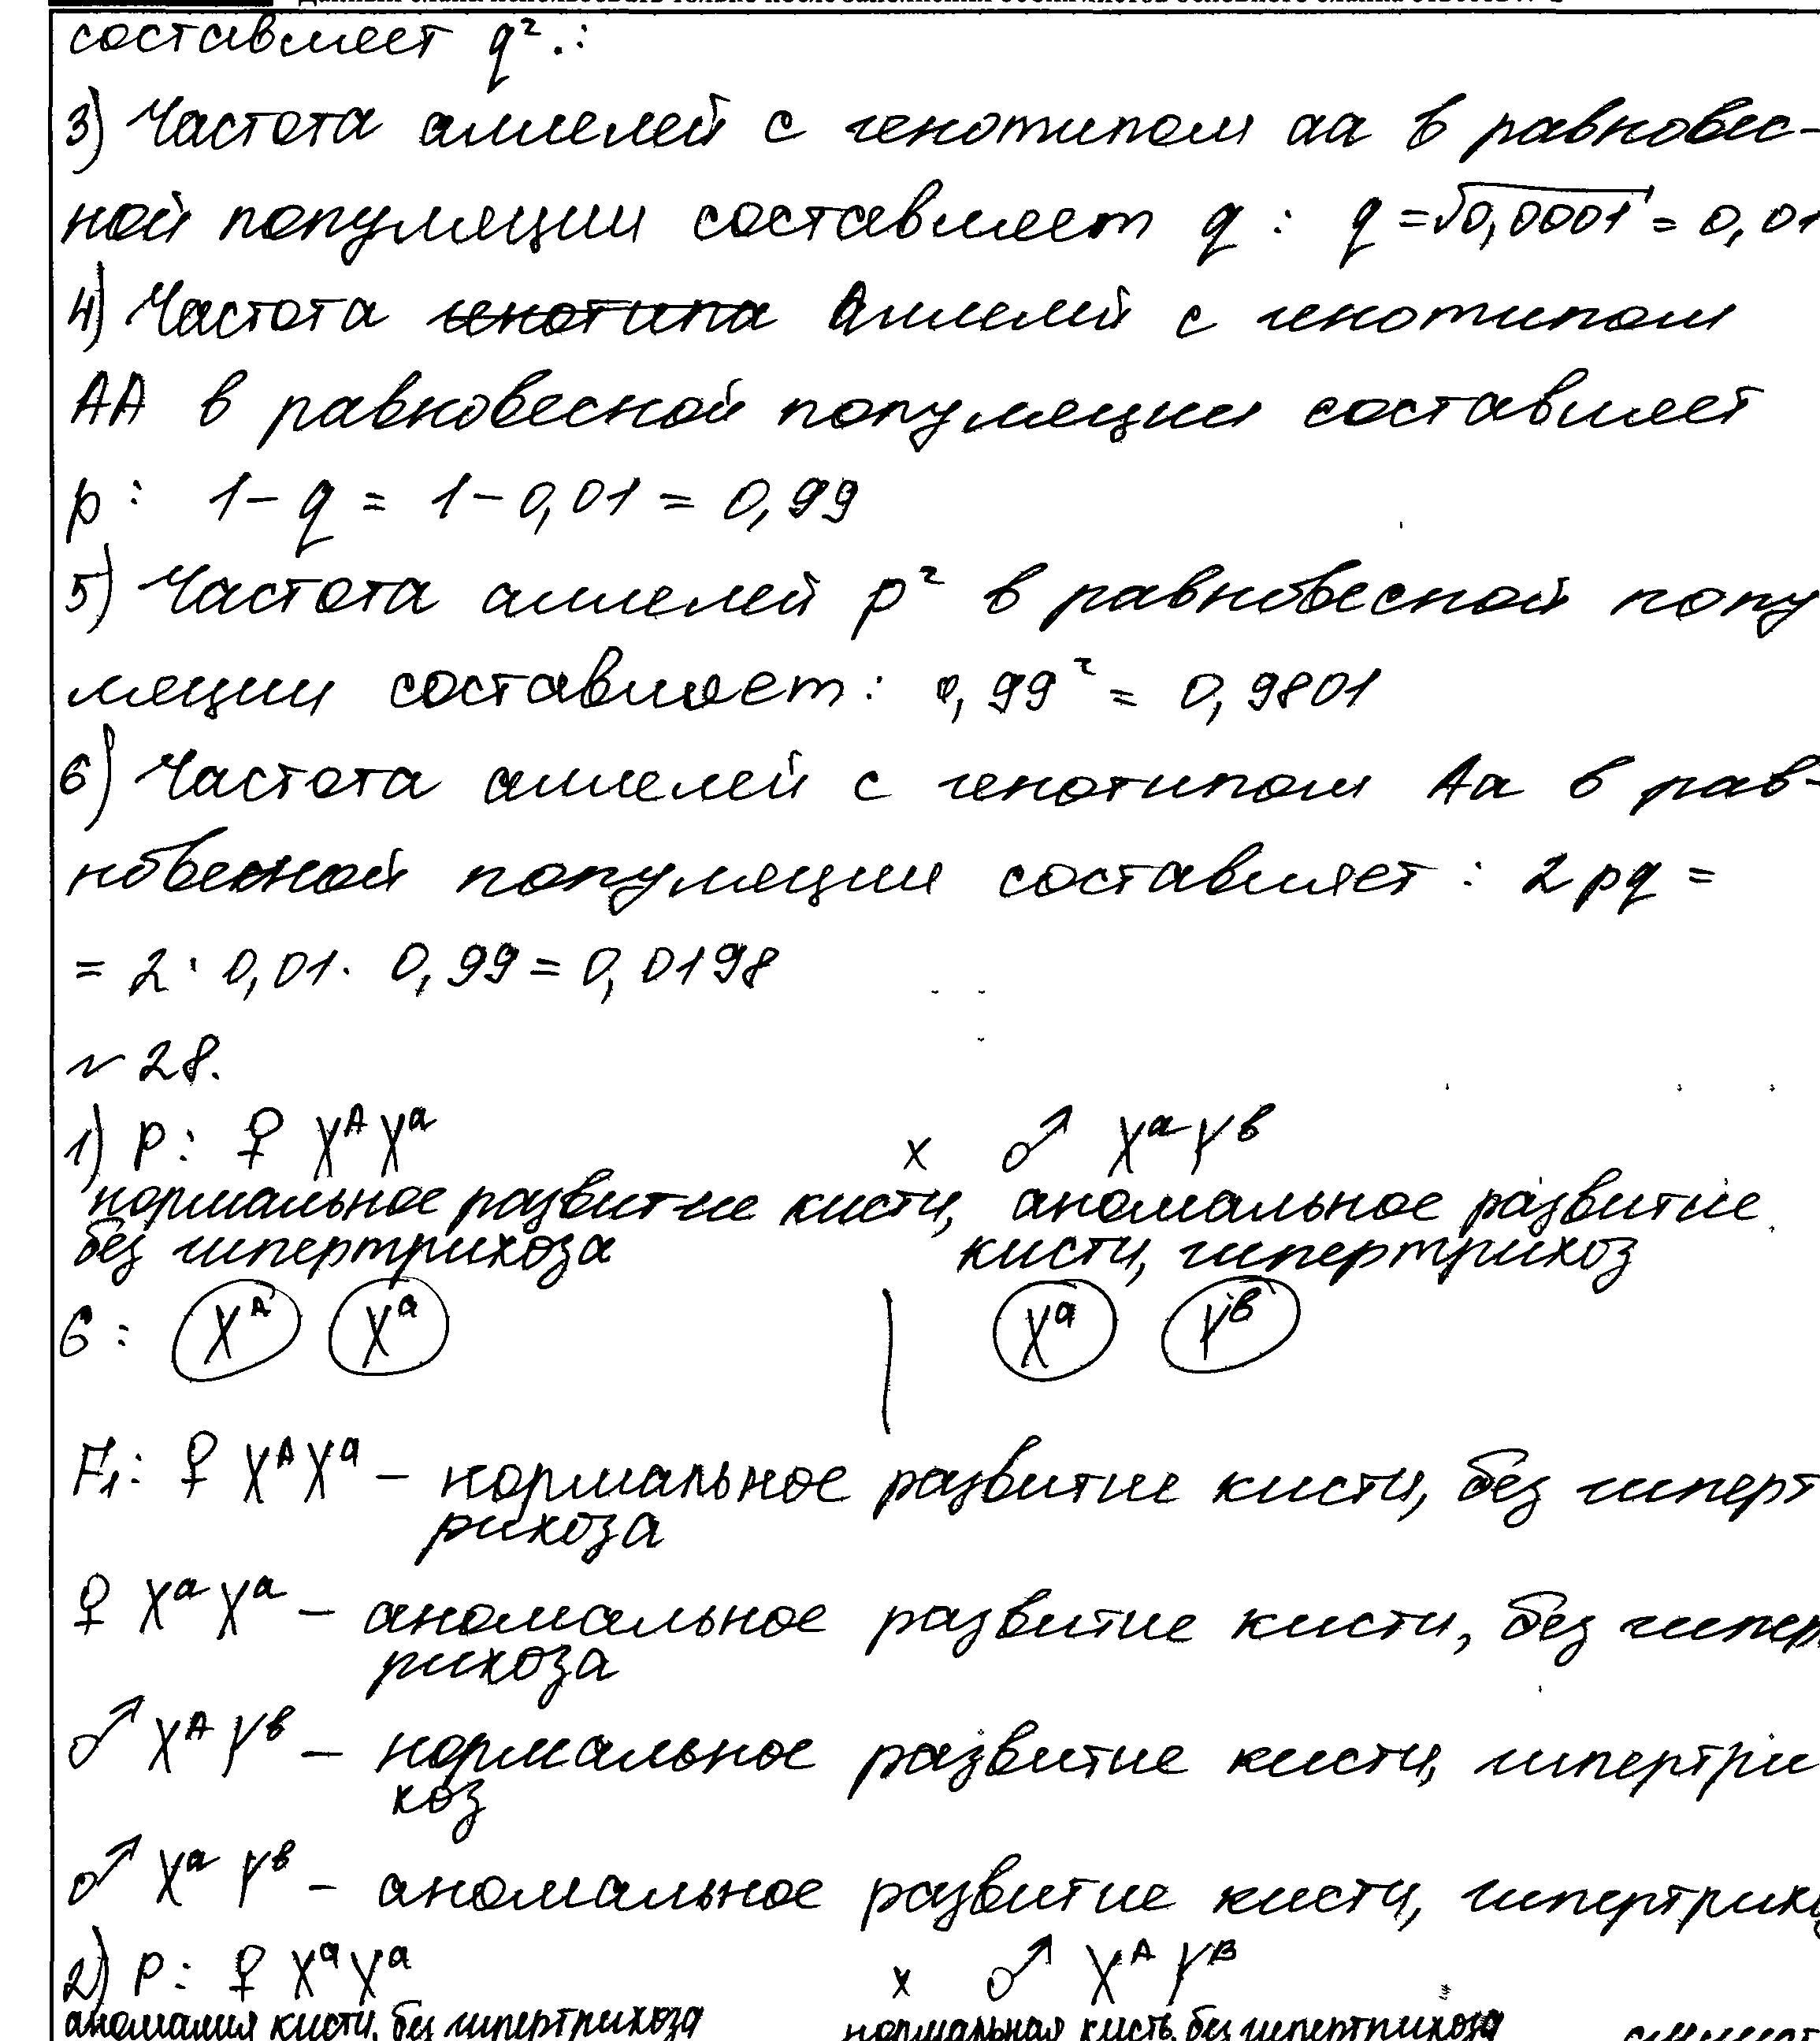 составляет q².:
3) Частота аллелей с генотипом аа в равновес-
ной популяции составляет q : q = √0,0001 = 0,01
4) Частота генотипа Аллелей с генотипом
АА в равновесной популяции составляет
p : 1 – q = 1 – 0,01 = 0,99
5) Частота аллелей p² в равновесной попу
ляции составляет: 0,99² = 0,9801
6) Частота аллелей с генотипом Аа в рав-
новесной популяции составляет : 2pq =
= 2 · 0,01 · 0,99 = 0,0198
№ 28.
1) P: ♀ XᴬXᵃ × ♂ XᵃYᵇ
нормальное развитие кисти, аномальное развитие
без гипертрихоза кисти, гипертрихоз
G : Xᴬ Xᵃ | Xᵃ Yᵇ
F₁: ♀ XᴬXᵃ – нормальное развитие кисти, без гиперт
рихоза
♀ XᵃXᵃ – аномальное развитие кисти, без гиперт
рихоза
♂ XᴬYᵇ – нормальное развитие кисти, гипертри
хоз
♂ XᵃYᵇ – аномальное развитие кисти, гипертрихо
2) P: ♀ XᵃXᵃ × ♂ XᴬYᴮ
аномалия кисти, без гипертрихоза нормальная кисть, без гипертрихоза